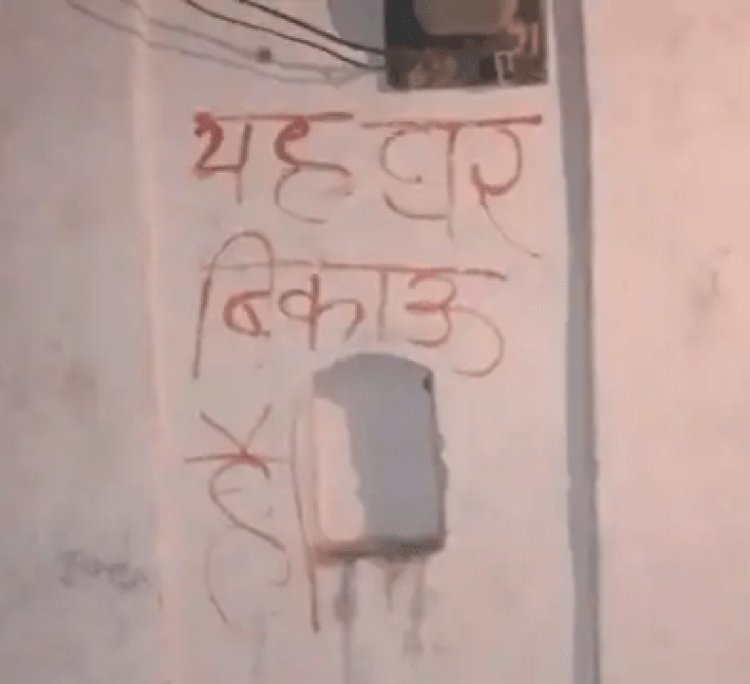 यह घर
बिकाऊ
है।